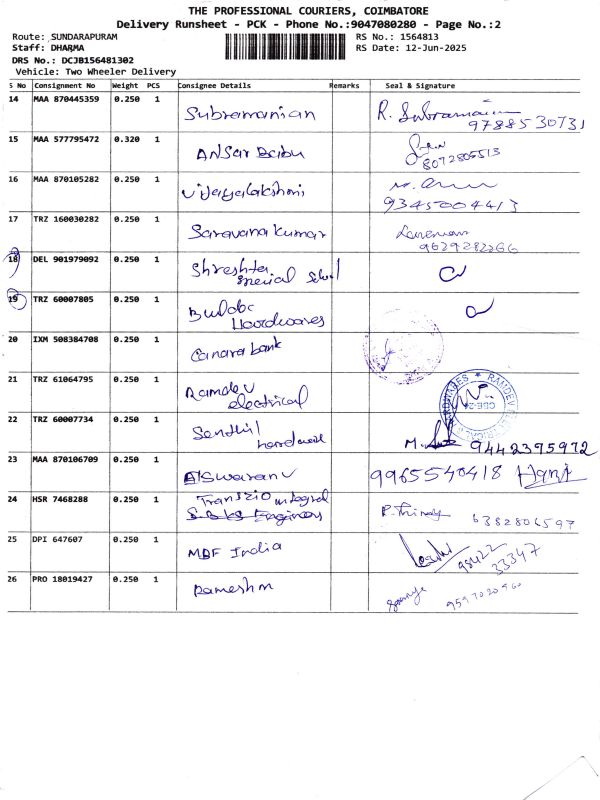 THE PROFESSIONAL COURIERS, COIMBATORE
Delivery Runsheet - PCK - Phone No.:9047080280 - Page No.:2
Route: SUNDARAPURAM RS No.: 1564813
Staff: DHARMA RS Date: 12-Jun-2025
DRS No.: DCJB156481302
Vehicle: Two Wheeler Delivery
S No Consignment No Weight PCS Consignee Details Remarks Seal & Signature
14 MAA 870445359 0.250 1 Subramanian R. Subramani
9788530731
15 MAA 577795472 0.320 1 ANSar Babu
8072805513
16 MAA 870105282 0.250 1 Vijayalakshmi
9345004413
17 TRZ 160030282 0.250 1 Saravana Kumar
9629282266
18 DEL 901979092 0.250 1 Shreshta
Special School
19 TRZ 60007805 0.250 1 Buildbc
Hardwares
20 IXM 508384708 0.250 1 Canara bank
21 TRZ 61064795 0.250 1 Ramdev
electrical
22 TRZ 60007734 0.250 1 Senthil
hardware
9442395972
23 MAA 870106709 0.250 1 AISwarya V 9965540418
24 HSR 7468288 0.250 1 integral
Engineers
6382806597
25 DPI 647607 0.250 1 MBF India
98422
33347
26 PRO 18019427 0.250 1 Ramesh m
9597020960